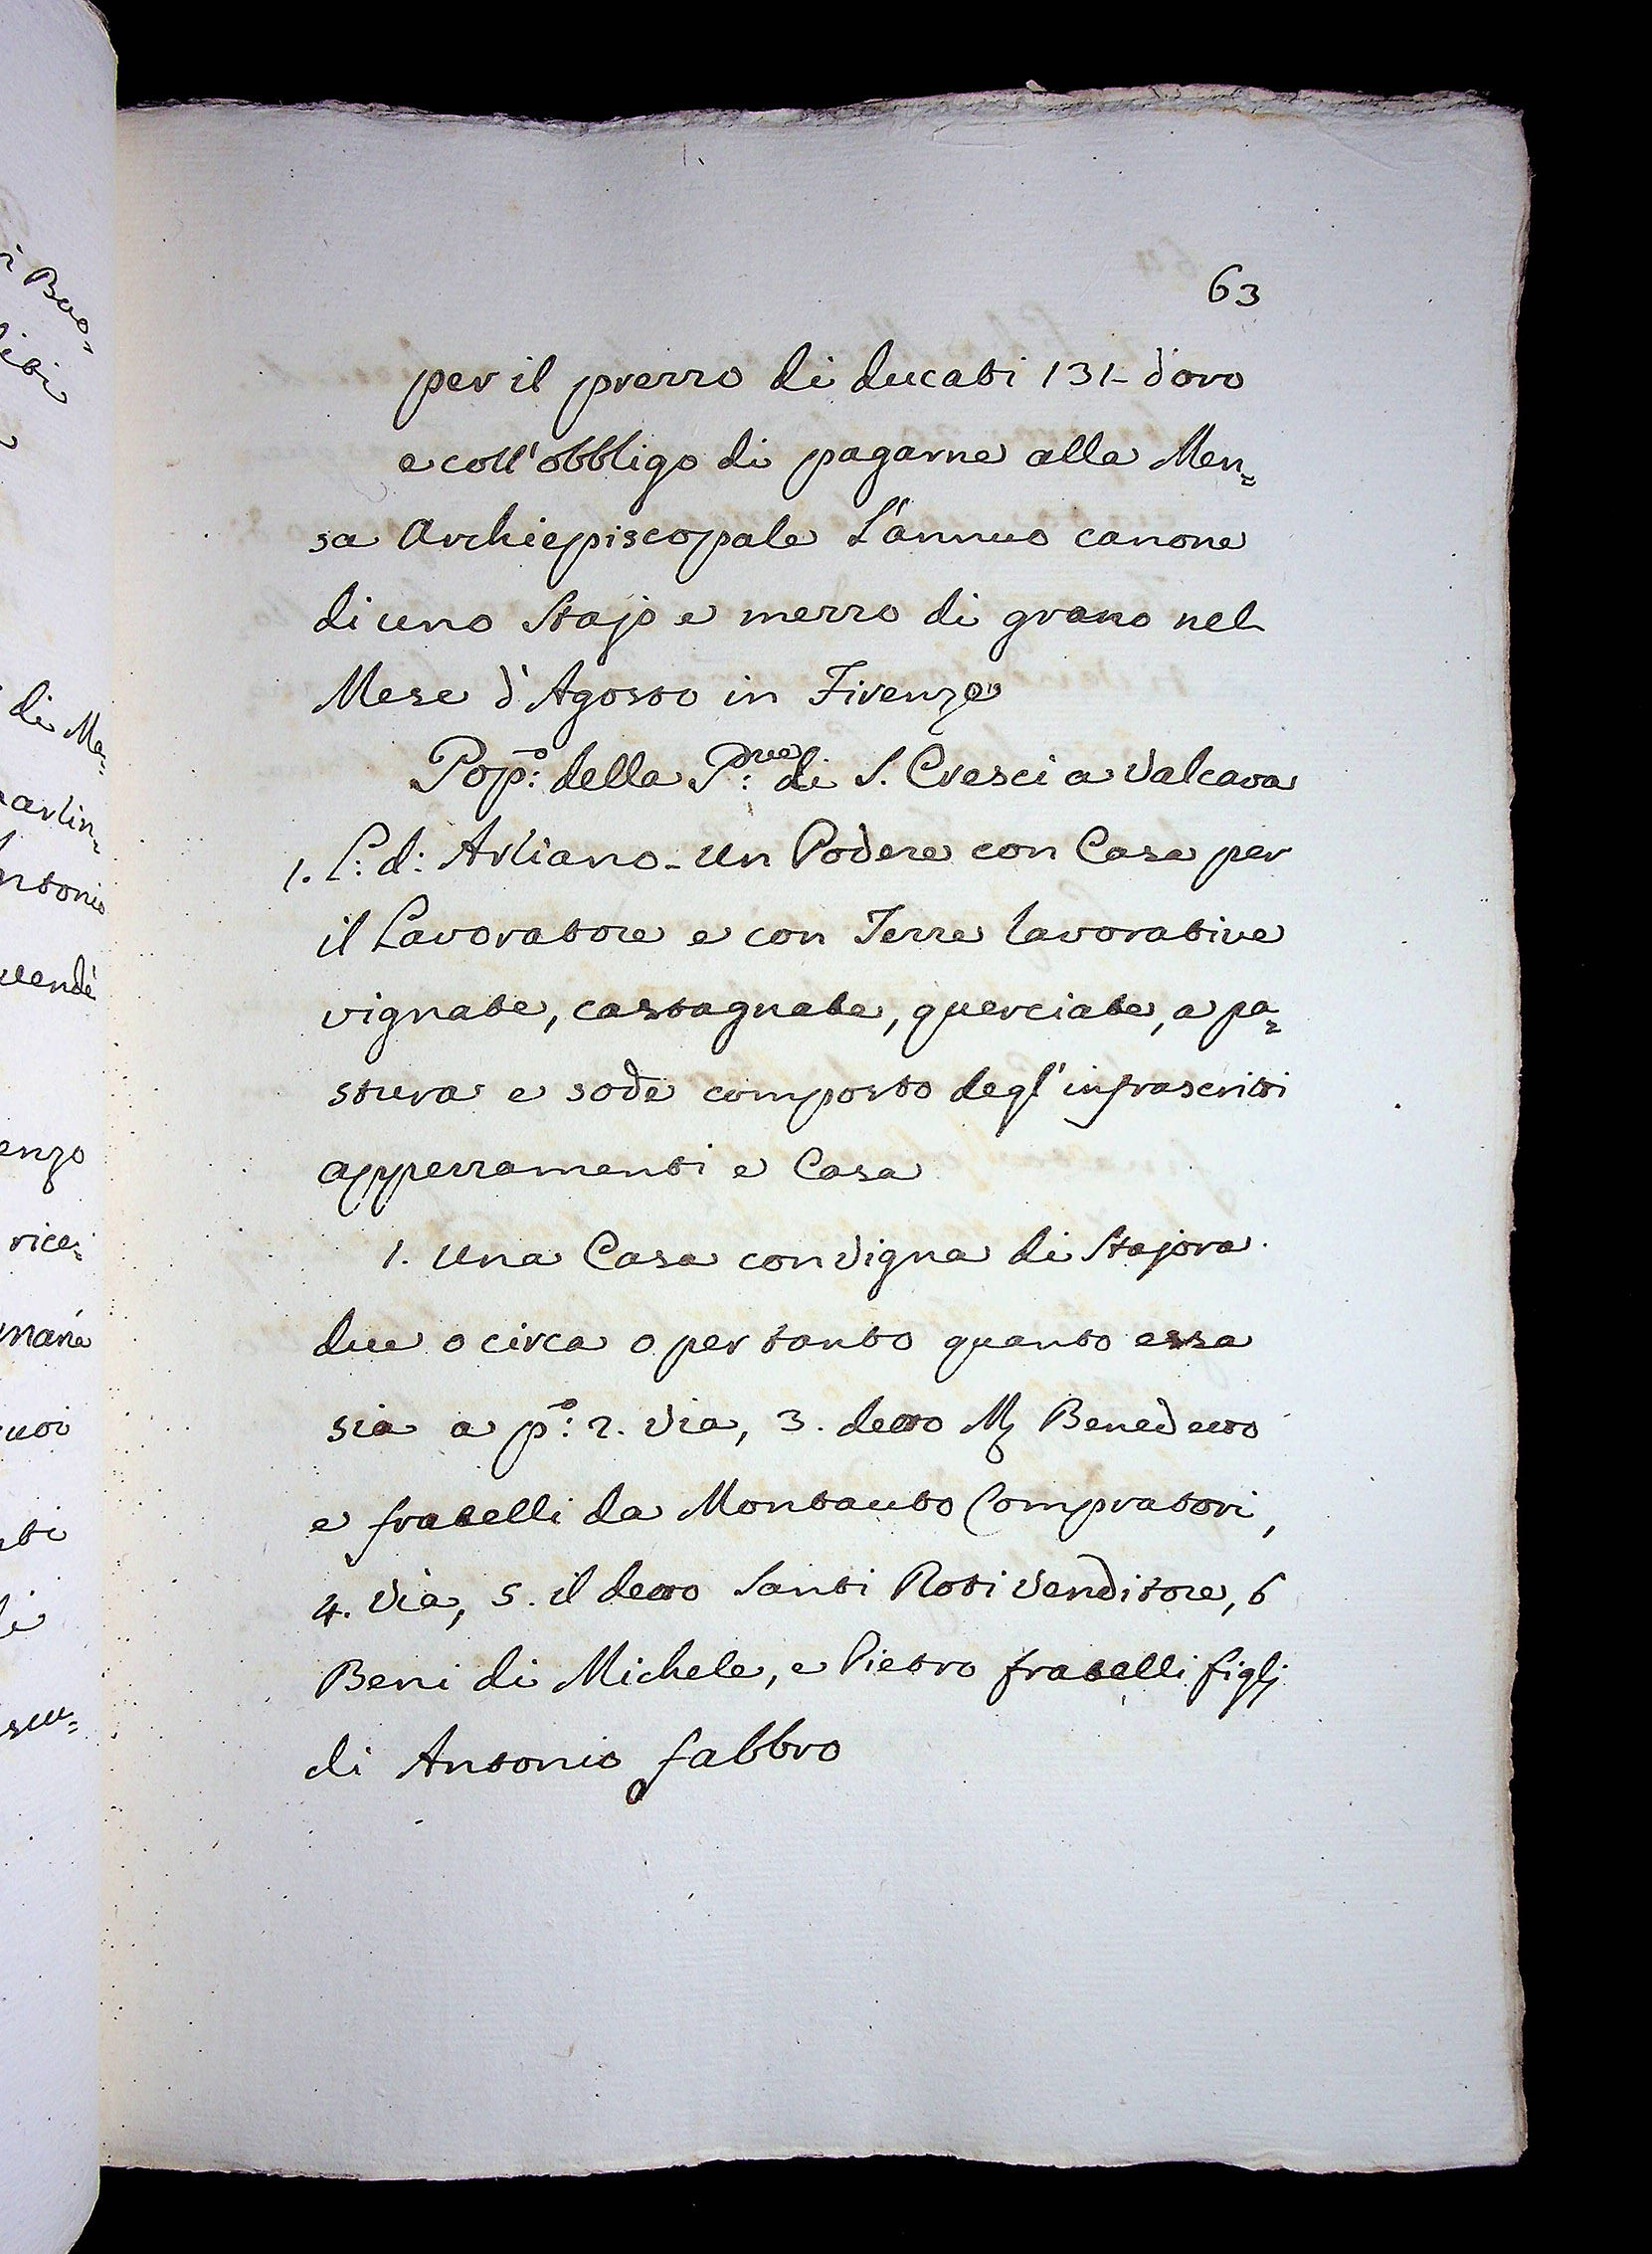 63
per il prezzo di ducati 131- d'oro
e coll'obbligo di pagarne alla Men=
sa Archiepiscopale L'annuo canone
di uno Stajo e mezzo di grano nel
Mese d'Agosto in Firenze
Pop:º della P:ve di S. Cresci a Valcava
1. L: d: Arliano - un Podere con Casa per
il Lavoratore e con Terre lavorative
vignate, castagnate, querciate, a pa=
stura e sode composto degl'infrascritti
appezzamenti e Casa
1. una Casa con vigna di Stajora
due o circa o per tanto quanto essa
sia a p:º 2. via, 3. detto M Benedetto
e fratelli da Montauto Compratori,
4. via, 5. il detto Santi Roti venditore, 6
Beni di Michele, e Pietro fratelli figlj
di Antonio fabbro
di Ma=
vendè
enzo
rice=